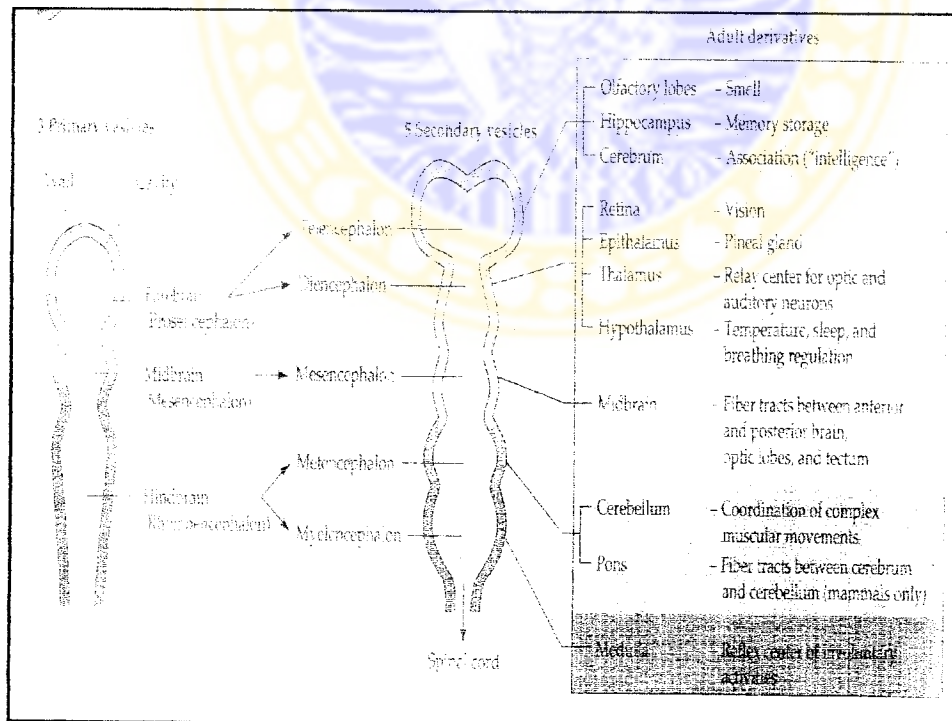 Adult derivatives
3 Primary vesicles
5 Secondary vesicles
Wall
Cavity
Forebrain
(Prosencephalon)
Midbrain
(Mesencephalon)
Hindbrain
(Rhombencephalon)
Telencephalon
Diencephalon
Mesencephalon
Metencephalon
Myelencephalon
Spinal cord
Olfactory lobes – Smell
Hippocampus – Memory storage
Cerebrum – Association ("intelligence")
Retina – Vision
Epithalamus – Pineal gland
Thalamus – Relay center for optic and
auditory neurons
Hypothalamus – Temperature, sleep, and
breathing regulation
Midbrain – Fiber tracts between anterior
and posterior brain,
optic lobes, and tectum
Cerebellum – Coordination of complex
muscular movements
Pons – Fiber tracts between cerebrum
and cerebellum (mammals only)
Medulla – Reflex center of involuntary
activities